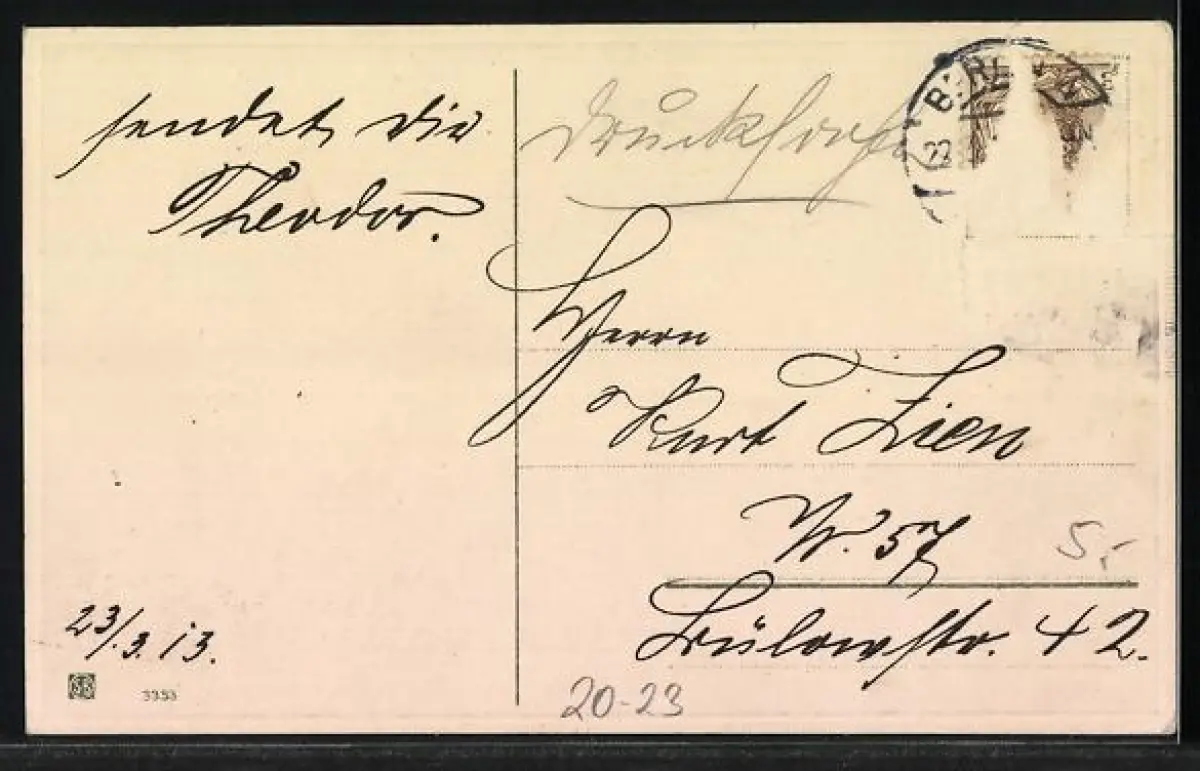 sendet die
Theodor.
23/.3.13.
3353
Drucksache
BERLIN
22
Herrn
Kurt Zien
W. 57
Bülowstr. 42.
5,-
20-23